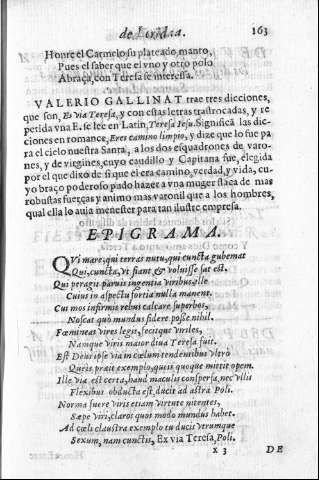 de Lerida. 163
Honre el Carmelo su plateado manto,
Pues el saber que el vno y otro polo
Abraça, con Teresa se interessa.
VALERIO GALLINAT trae tres dicciones,
que son, Es via Teresa, y con estas letras trastrocadas, y re
petida vna E. se lee en Latin, Teresa Iesu. Significã las dic-
ciones en romance, Eres camino limpio, y dize que lo fue pa
ra el cielo nuestra Santa, a los dos esquadrones de varo-
nes, y de virgines, cuyo caudillo y Capitana fue, elegida
por el que dixo de si que el era camino, verdad, y vida, cu-
yo braço poderoso pudo hazer a vna muger flaca de mas
robustas fuerças y animo mas varonil que a los hombres,
qual ella lo auia menester para tan ilustre empresa.
EPIGRAMA.
QVi mare, qui terras nutu, qui cuncta gubernat
Qui, cuncta, vt fiant & voluisse sat est.
Qui peragit paruis ingentia viribus, ille
Cuius in aspectu fortia nulla manent.
Cui mos infirmis rebus calcare superbos,
Noscat quò mundus fidere posse nihil.
Fœmineas vires legit, fecitque viriles,
Namque viris maior diua Teresa fuit.
Est Deus ipse via in cœlum tendentibus vltrò
Queis præit exemplo, quos quoque mittit opem.
Ille via est certa, haud maculis conspersa, nec vllis
Flexibus obducta est, ducit ad astra Poli.
Norma fuere viris etiam virtute nitentes,
Sæpe viri, claros quos modo mundus habet.
Ad cœli claustra exemplo tu ducis vtrumque
Sexum, nam cunctis, Ex via Teresa, Poli.
x 3 DE